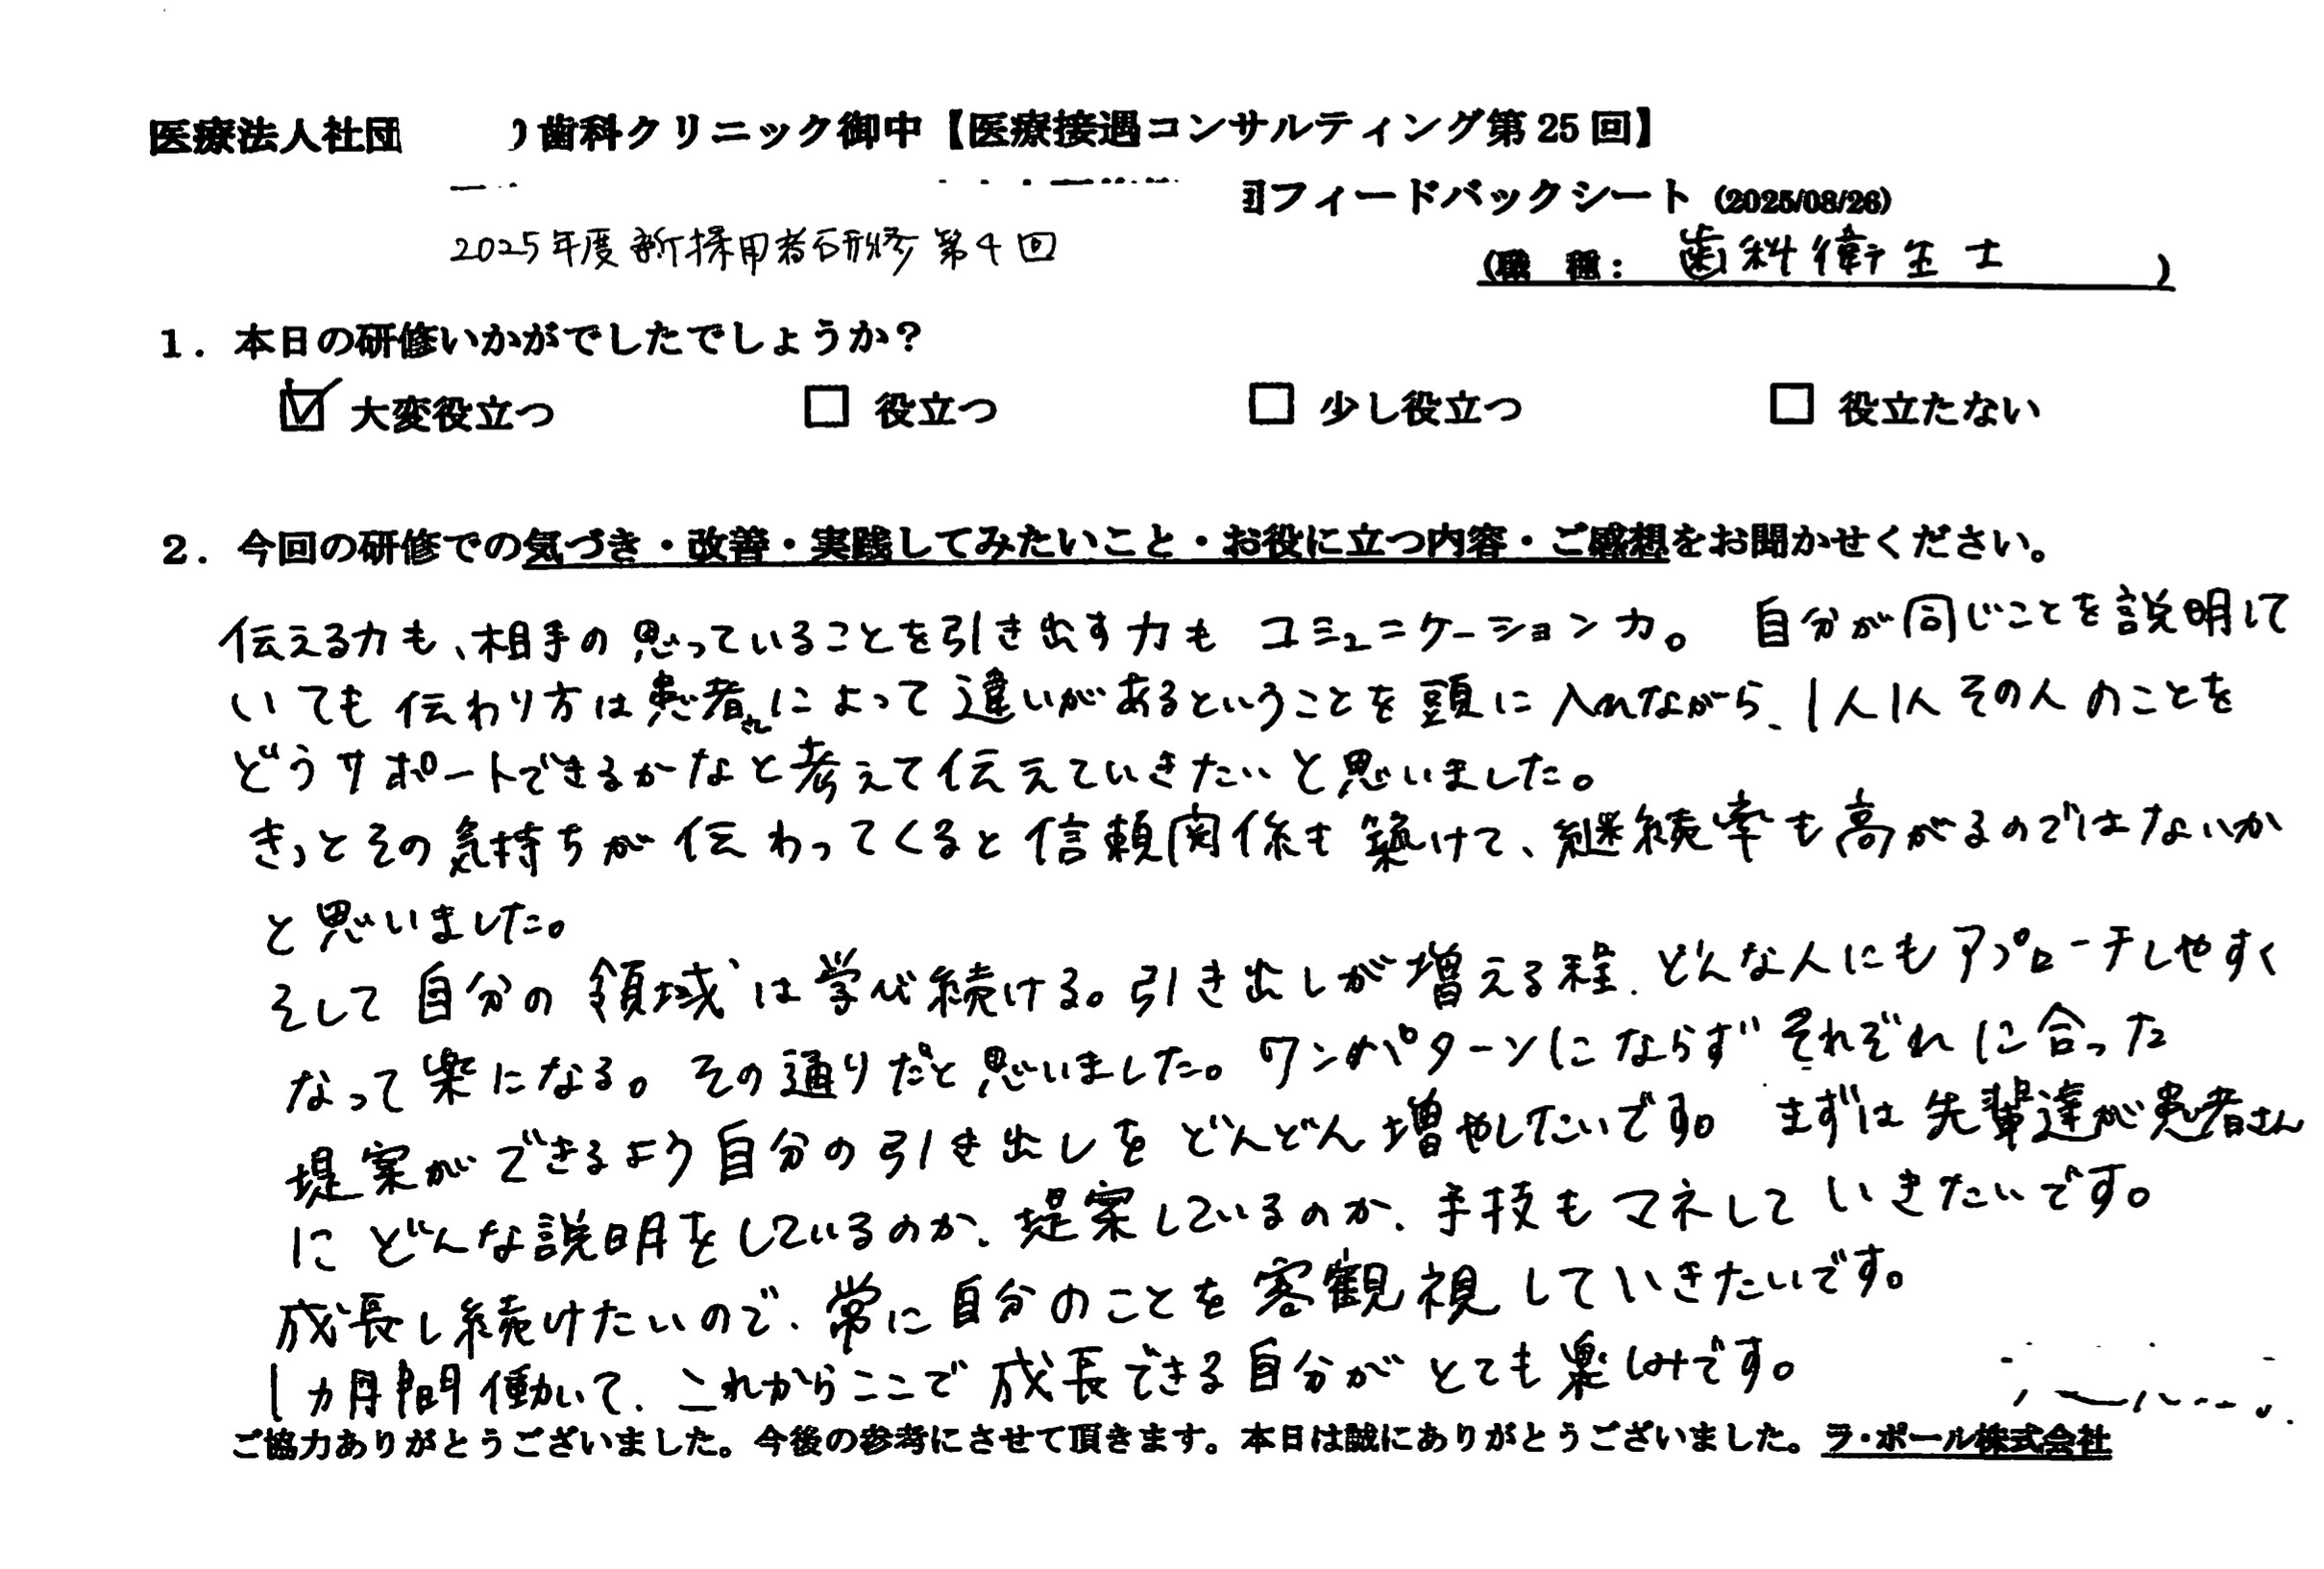 医療法人社団 歯科クリニック御中【医療接遇コンサルティング第25回】
フィードバックシート（2025/08/26）
2025年度新採用者研修第4回
（職　種：　歯科衛生士　）
1．本日の研修いかがでしたでしょうか？
☑ 大変役立つ　□ 役立つ　□ 少し役立つ　□ 役立たない
2．今回の研修での気づき・改善・実践してみたいこと・お役に立つ内容・ご感想をお聞かせください。
伝える力も、相手の思っていることを引き出す力も コミュニケーション力。 自分が同じことを説明して
いても伝わり方は患者さんによって違いがあるということを頭に入れながら、1人1人その人のことを
どうサポートできるかなと考えて伝えていきたいと思いました。
きっとその気持ちが伝わってくると信頼関係も築けて、継続率も高がるのではないか
と思いました。
そして自分の領域は学び続ける。引き出しが増える程、どんな人にもアプローチしやすく
なって楽になる。その通りだと思いました。ワンパターンにならずそれぞれに合った
提案ができるよう自分の引き出しをどんどん増やしたいです。 まずは先輩達が患者さん
にどんな説明をしているのか、提案しているのか、手技もマネしていきたいです。
成長し続けたいので、常に自分のことを客観視していきたいです。
1ヵ月間働いて、これからここで成長できる自分がとても楽しみです。
ご協力ありがとうございました。今後の参考にさせて頂きます。本日は誠にありがとうございました。ラ・ポール株式会社